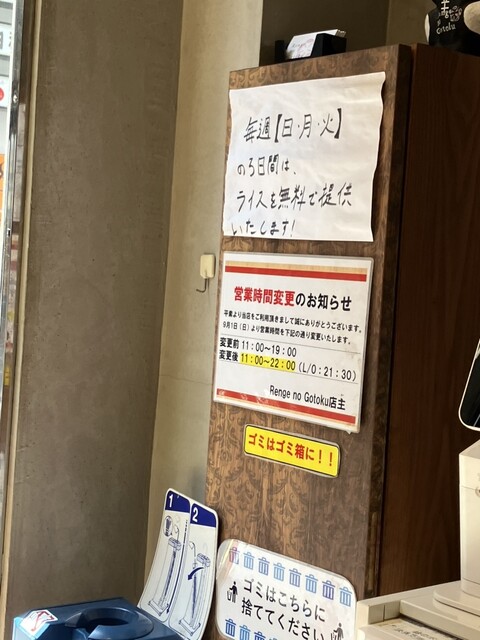 毎週【日・月・火】
の3日間は、
ライスを無料で提供
いたします！
営業時間変更のお知らせ
平素より当店をご利用頂きまして誠にありがとうございます。
9月1日（日）より営業時間を下記の通り変更いたします。
変更前 11：00～19：00
変更後 11：00～22：00（L/O：21：30）
Renge no Gotoku店主
ゴミはゴミ箱に！！
1
2
ゴミはこちらに
捨ててください